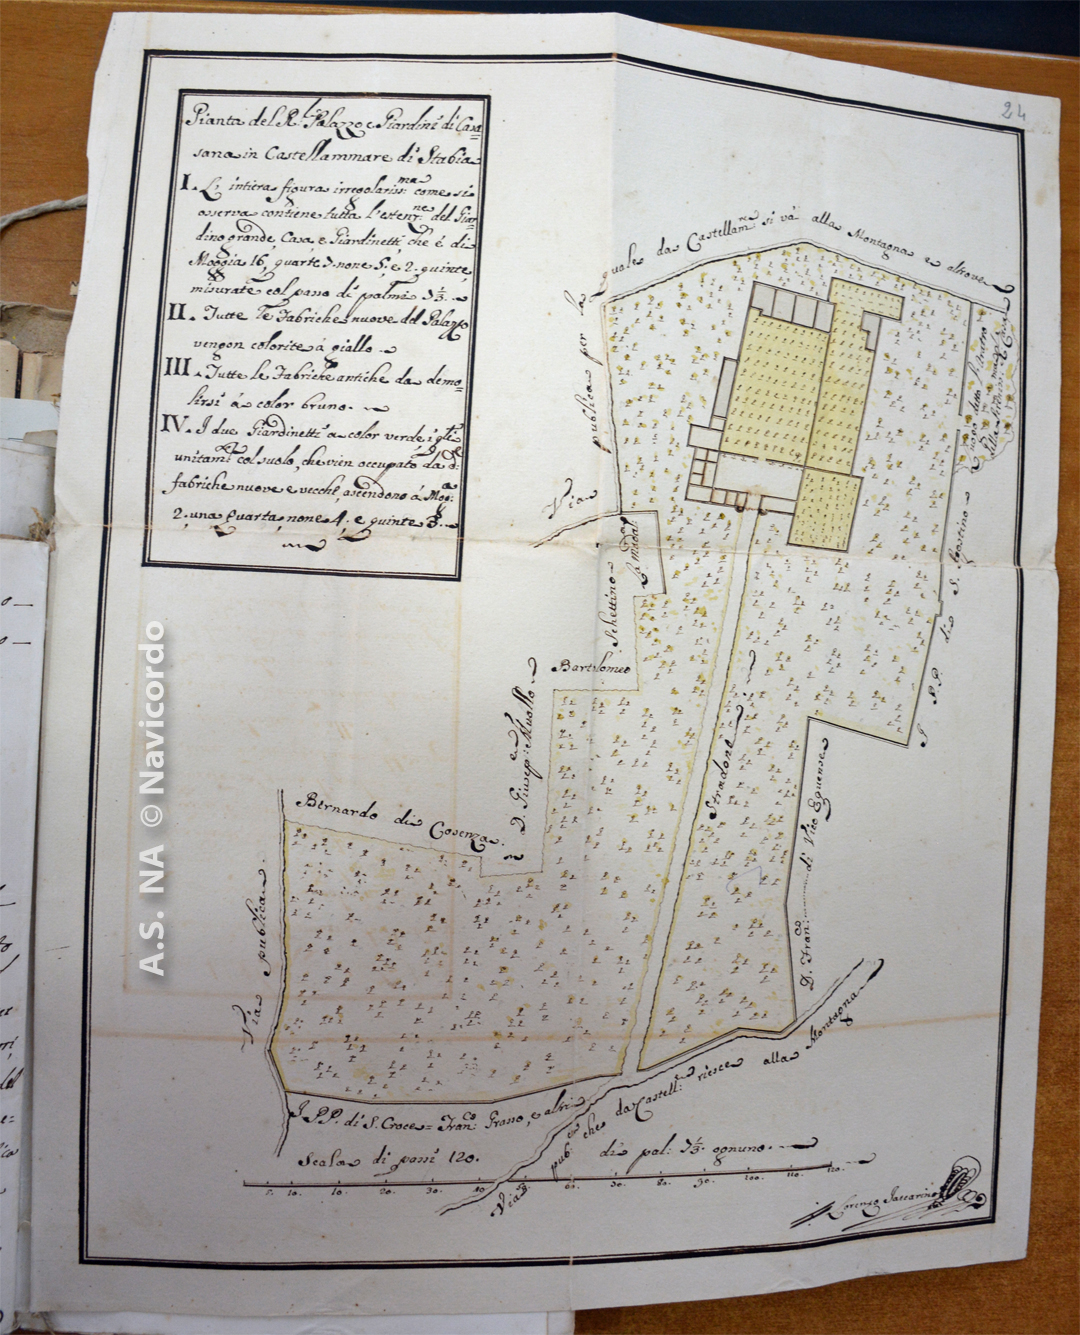 24
Pianta del R.l Palazzo e Giardini di Casa=
sana in Castellammare di Stabia
I. L'intiera figura irregolariss:ma come si
osserva contiene tutta l'estenz:ne del Giar=
dino grande, Casa e Giardinetti, che è di
Moggia 16, quarte 7. none 5. e 2. quinte,
misurate col passo di palmi 7 1/3.
II. Tutte le Fabriche nuove del Palazzo
vengon colorite à giallo.
III. Tutte le Fabriche antiche da demo=
lirsi à color bruno.
IV. I due Giardinetti a color verde, i q.li
unitam.te col suolo, che vien occupato da d.e
fabriche nuove e vecchie, ascendono à Mog:a
2. una quarta, none 4. e quinte 3.
Via publica per la quale da Castellam.re si và alla Montagna e altrove
Luogo detto il teatro
I P.P. di S. Agostino
Bartolomeo Schettino
D. Giusep:e Muollo
Bernardo di Cosenza
Stradone
D. Fran:co di Vico Equense
Via publica
I PP. di S. Croce = Fran:co Grano, e altri
Via pub:ca che da Castell:e riesce alla Montagna
Scala di passi 120. di pal: 7 1/3. ognuno.
5. 10. 20. 30. 40. 60. 70. 80. 90. 100. 110. 120.
Lorenzo Iaccarino
A.S. NA © Navicordo